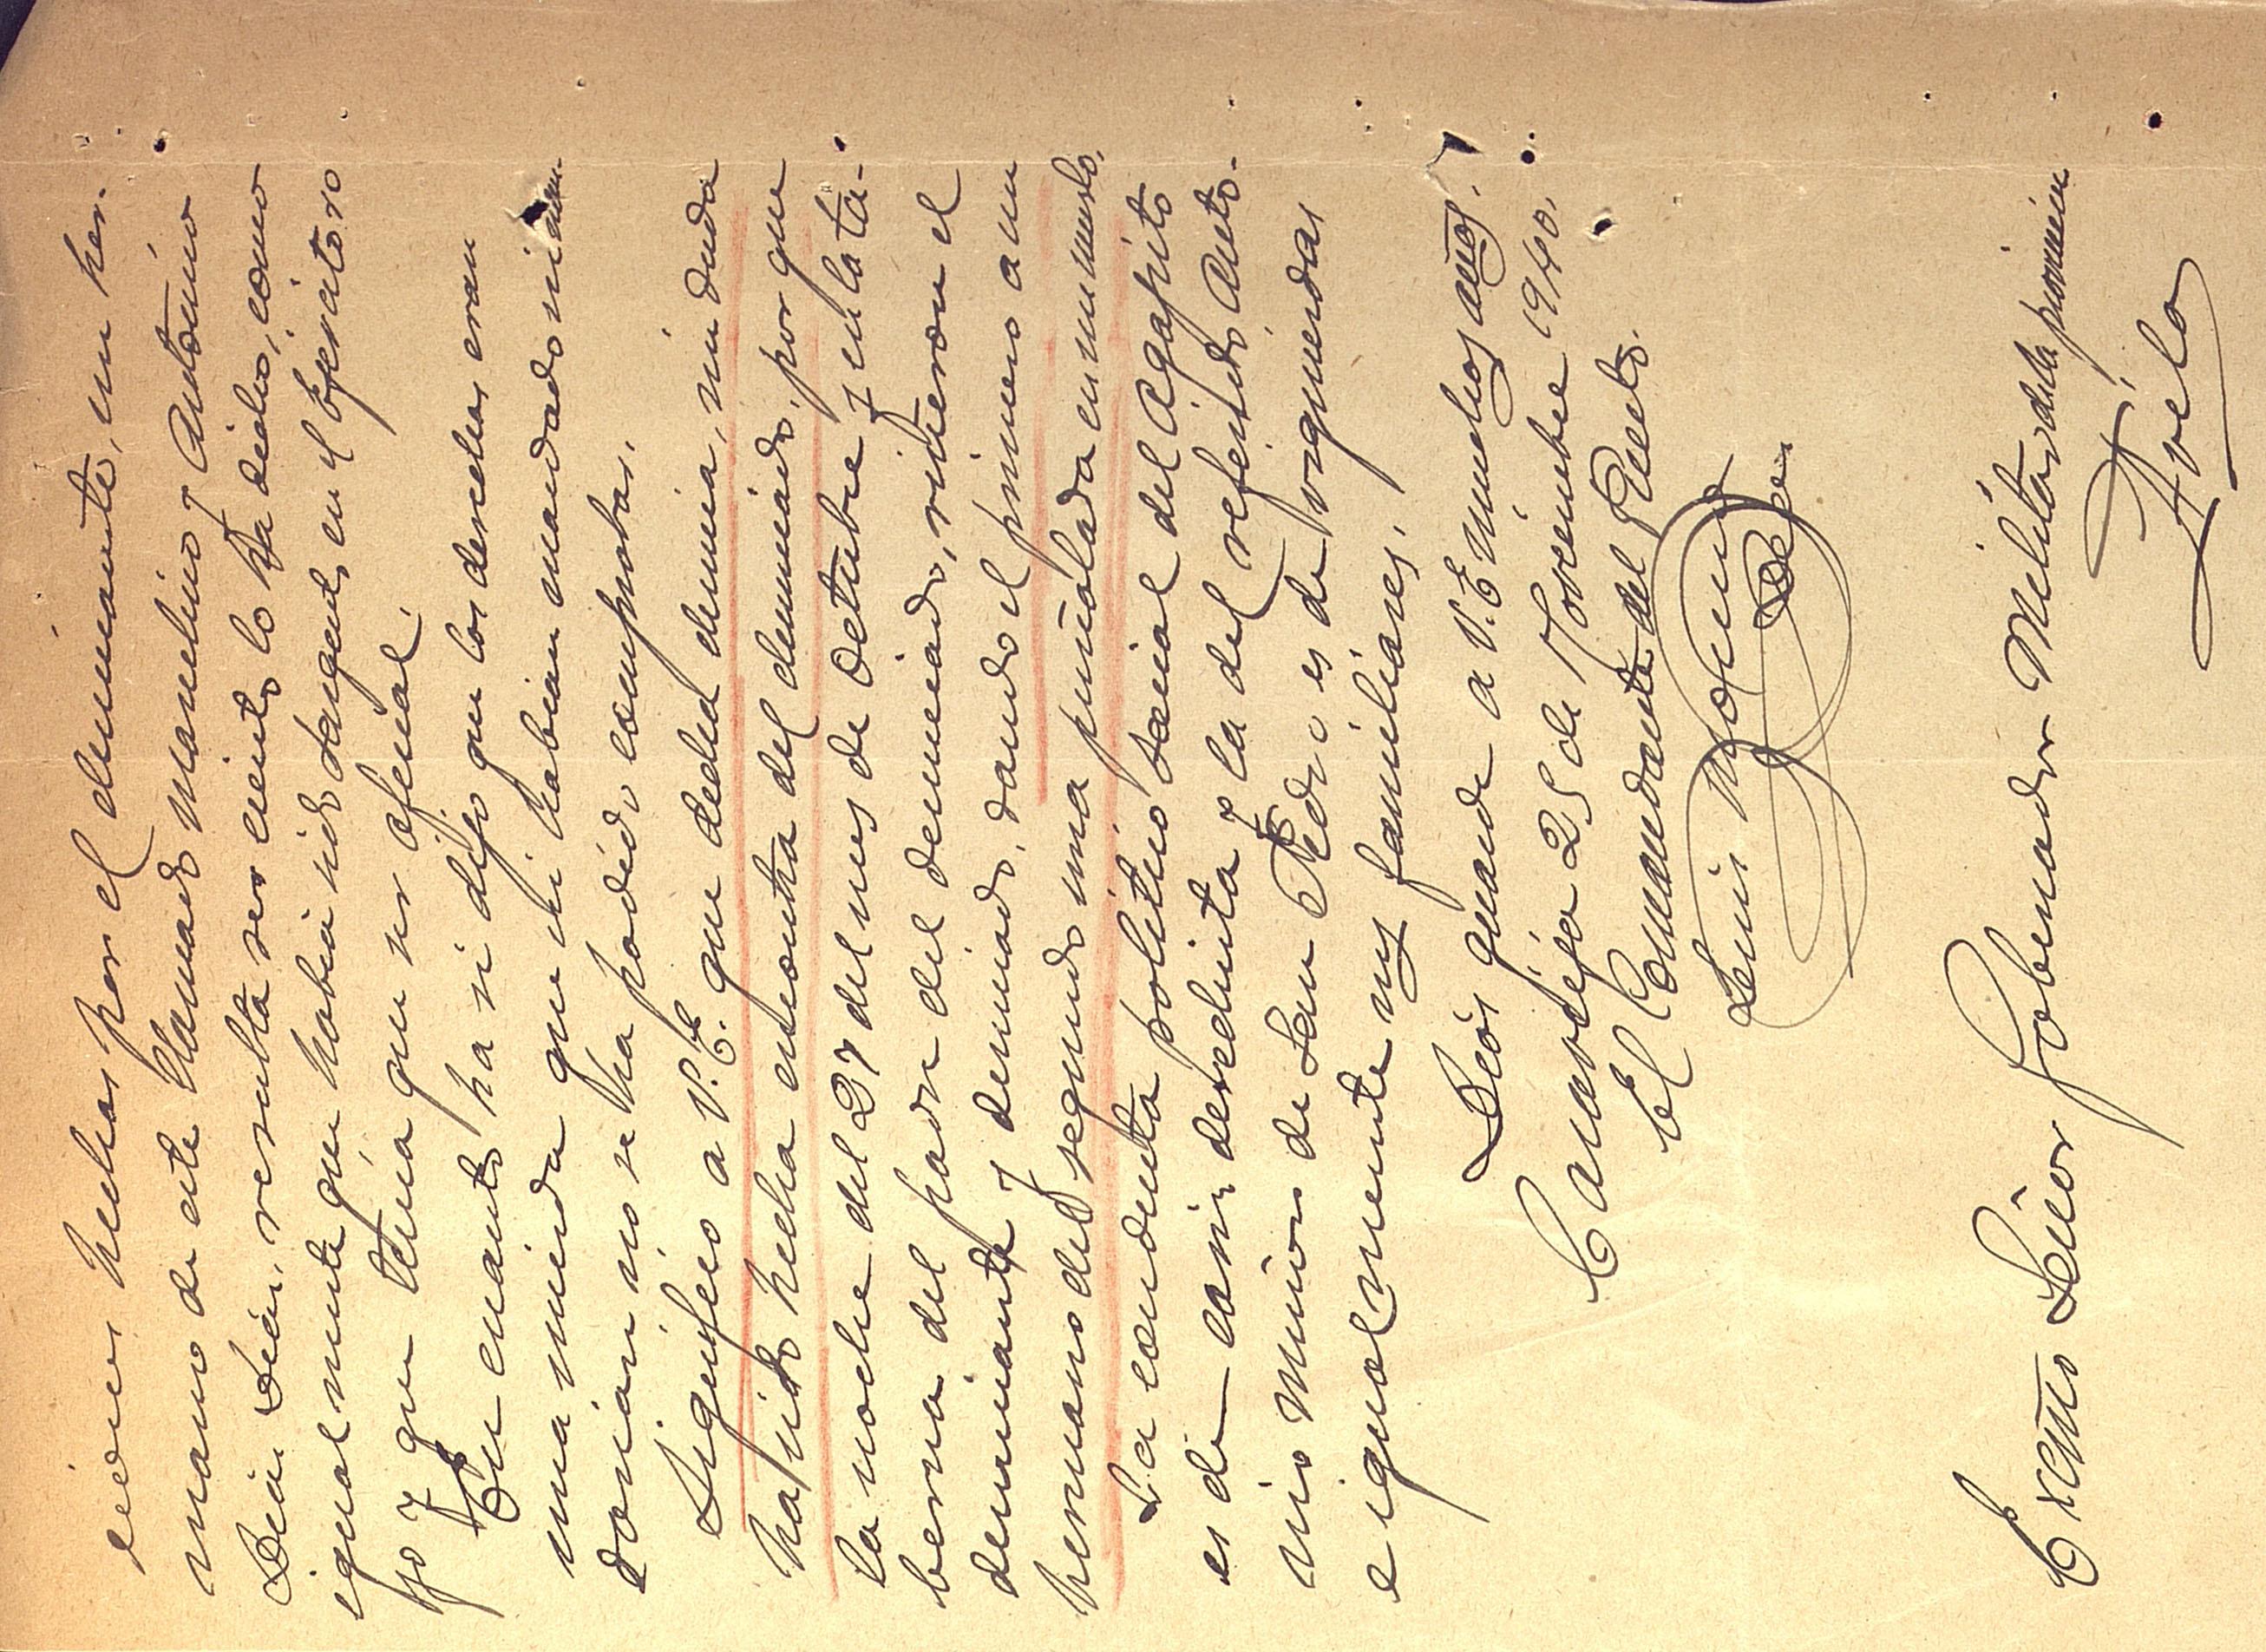 ciones hechas por el denunciante, un her-
mano de este llamado Marcelino y Antonino
Diaz Diaz, resulta ser cierto lo ha dicho, como
igualmente que habia sido Sargento en el Ejercito ro
jo y que tenia que ser oficial.
En cuanto ha si dijo que los derechas eran
una mierda que ni habian mandado ni man
darian no se ha podido comprobar.
Significo a V.E. que dicha denuncia, sin duda
ha sido hecha en contra del denunciado, por que
la noche del 27 del mes de Octubre y en la ta-
berna del padre del denunciado, riñeron el
denunciante y denunciado, dando el primero a un
hermano del segundo una puñalada en un muslo.
La conducta politico social del Agapito
es de casi derechista y la del referido Anto-
nio Muñoz de San Pedro es de izquierdas
e igualmente sus familiares.
Dios guarde a V.E. muchos años.
Candeleda 25 de Noviembre 1940.
El Comandante del Puesto.
Luis
Excmo Señor Gobernador Militar de la provincia
Avila